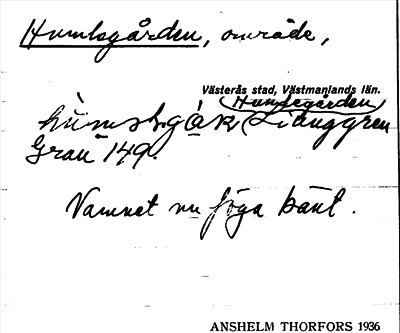 Humlsgården, område,
Västerås stad, Västmanlands län.
(Humlegården)
Ljunggren
Gran 149.
Namnet nu föga känt.
ANSHELM THORFORS 1936